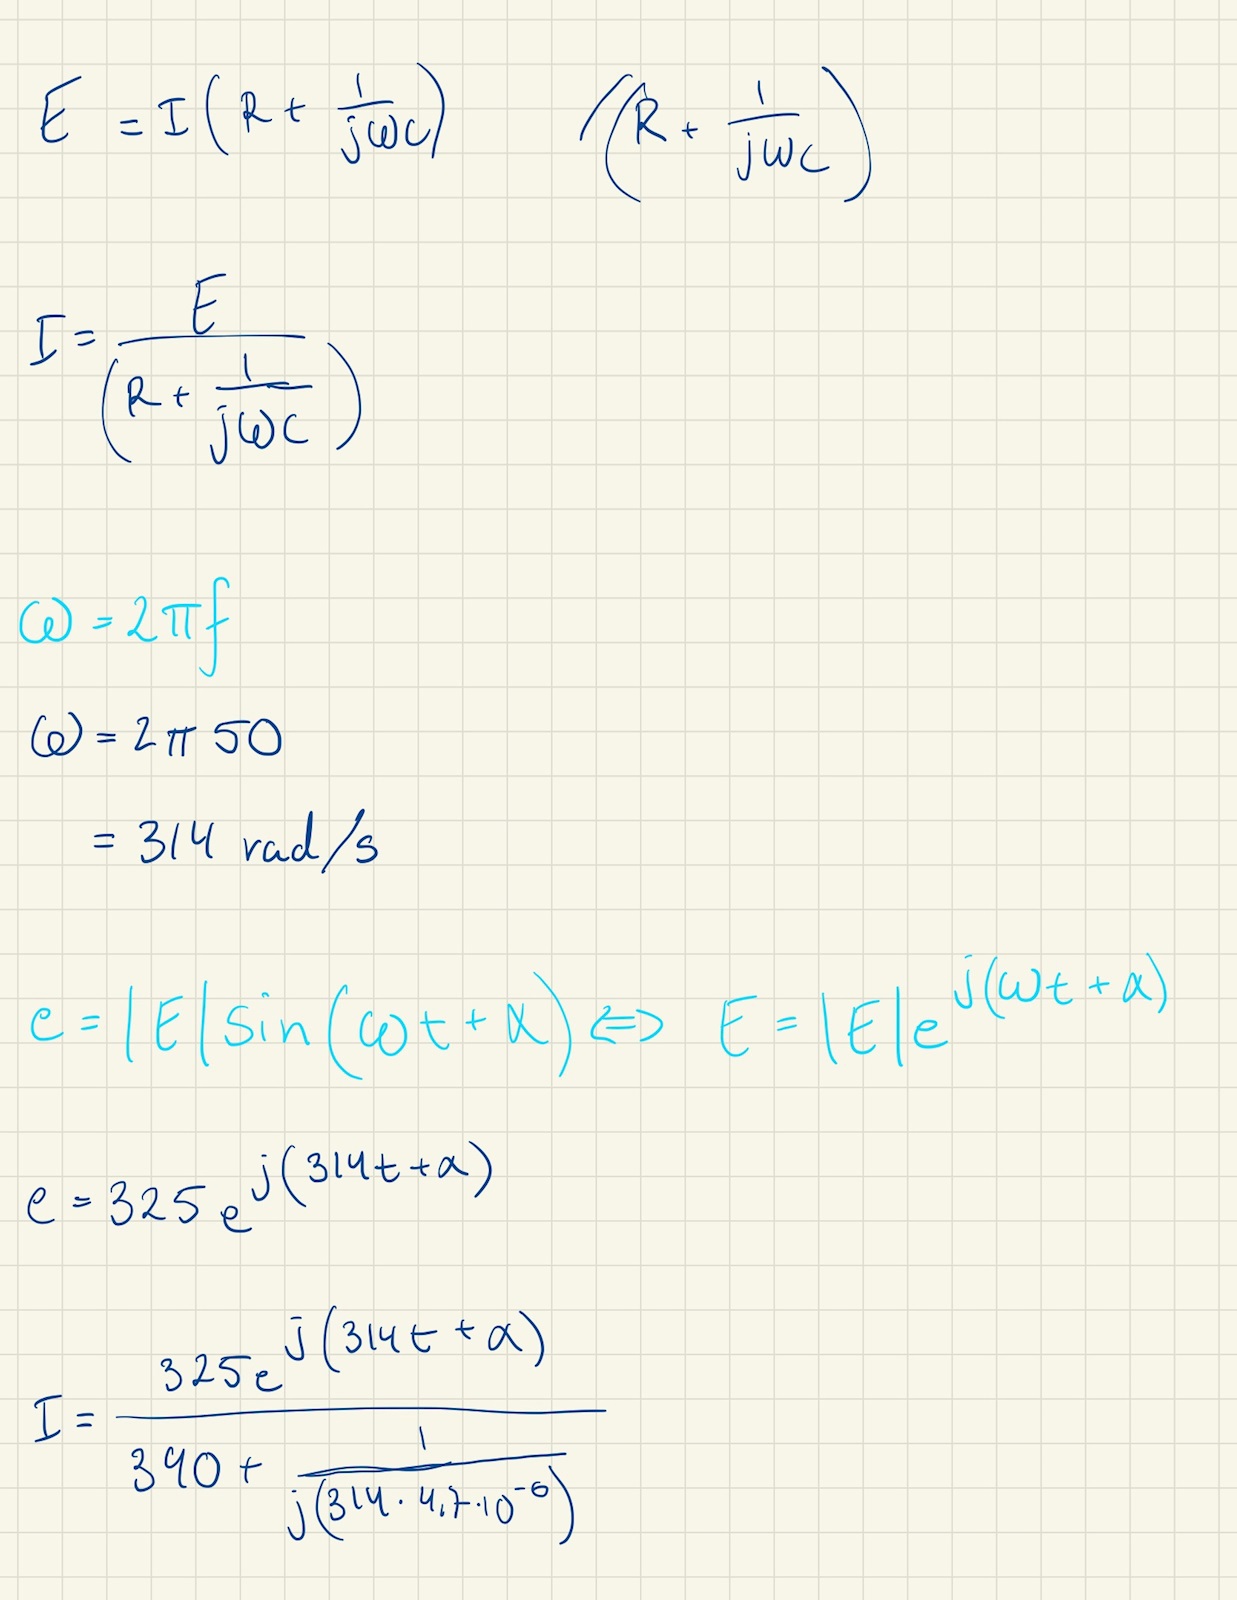 E = I(R + 1/jωC) /(R + 1/jωC)
I = E/(R + 1/jωC)
ω = 2πf
ω = 2π 50
= 314 rad/s
e = |E| sin(ωt + α) ⇔ E = |E|e^j(ωt + α)
e = 325 e^j(314t + α)
I = 325e^j(314t + α)/(390 + 1/j(314 · 4,7 · 10^-6))